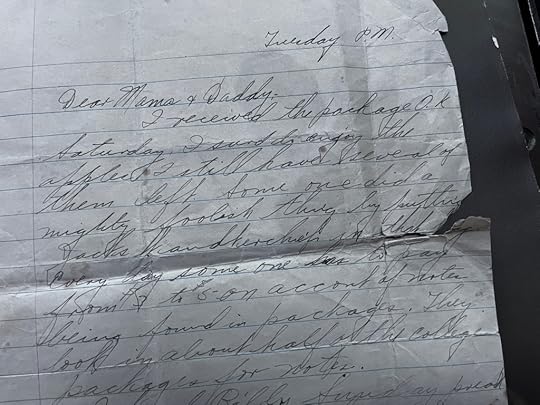 Tuesday P.M.
Dear Mama & Daddy-
I received the package O.K
Saturday I surely enjoy the
apples I still have several of
them left. Some one did a
mighty foolish thing by putting
Jacks handkerchief in that
Every day some one has to pay
from $ to $ on account of notes
being found in packages. They
look in about half of the college
packages for notes.
Billy Sunday